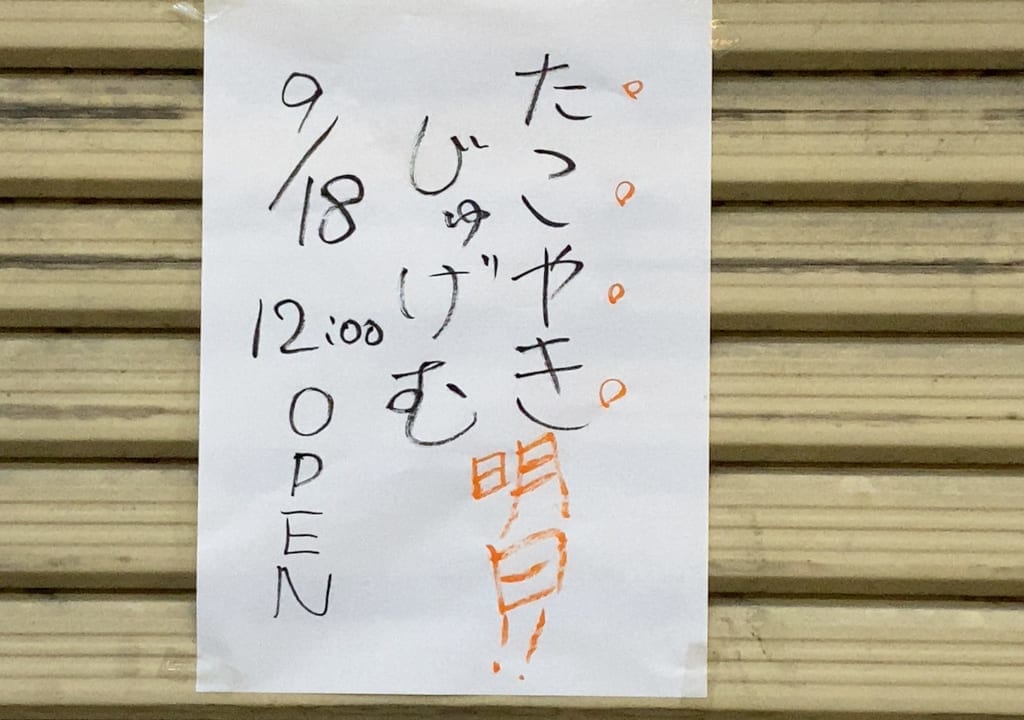 たこやき
じゅげむ
9/18 12:00 OPEN
明日!!